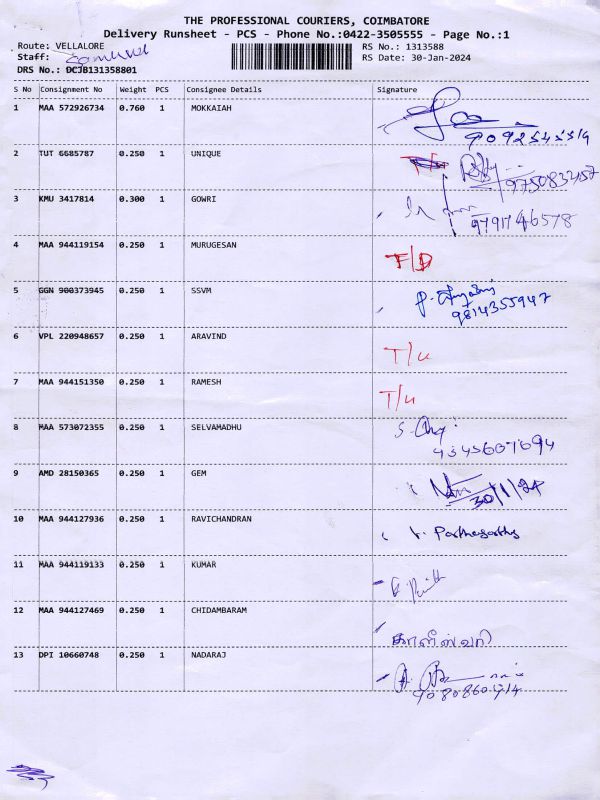 THE PROFESSIONAL COURIERS, COIMBATORE
Delivery Runsheet - PCS - Phone No.:0422-3505555 - Page No.:1
Route: VELLALORE RS No.: 1313588
Staff: RS Date: 30-Jan-2024
DRS No.: DCJB131358801
S No Consignment No Weight PCS Consignee Details Signature
1 MAA 572926734 0.760 1 MOKKAIAH
2 TUT 6685787 0.250 1 UNIQUE
975083457
3 KMU 3417814 0.300 1 GOWRI
9791746578
4 MAA 944119154 0.250 1 MURUGESAN F/D
5 GGN 900373945 0.250 1 SSVM
9814355947
6 VPL 220948657 0.250 1 ARAVIND T/u
7 MAA 944151350 0.250 1 RAMESH T/u
8 MAA 573072355 0.250 1 SELVAMADHU
4345607694
9 AMD 28150365 0.250 1 GEM
30/1/24
10 MAA 944127936 0.250 1 RAVICHANDRAN
11 MAA 944119133 0.250 1 KUMAR
12 MAA 944127469 0.250 1 CHIDAMBARAM
காளீஸ்வரி
13 DPI 10660748 0.250 1 NADARAJ